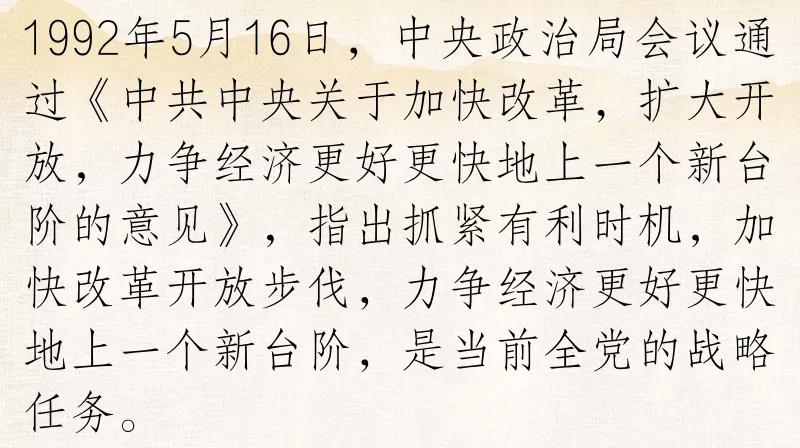 1992年5月16日，中央政治局会议通
过《中共中央关于加快改革，扩大开
放，力争经济更好更快地上一个新台
阶的意见》，指出抓紧有利时机，加
快改革开放步伐，力争经济更好更快
地上一个新台阶，是当前全党的战略
任务。